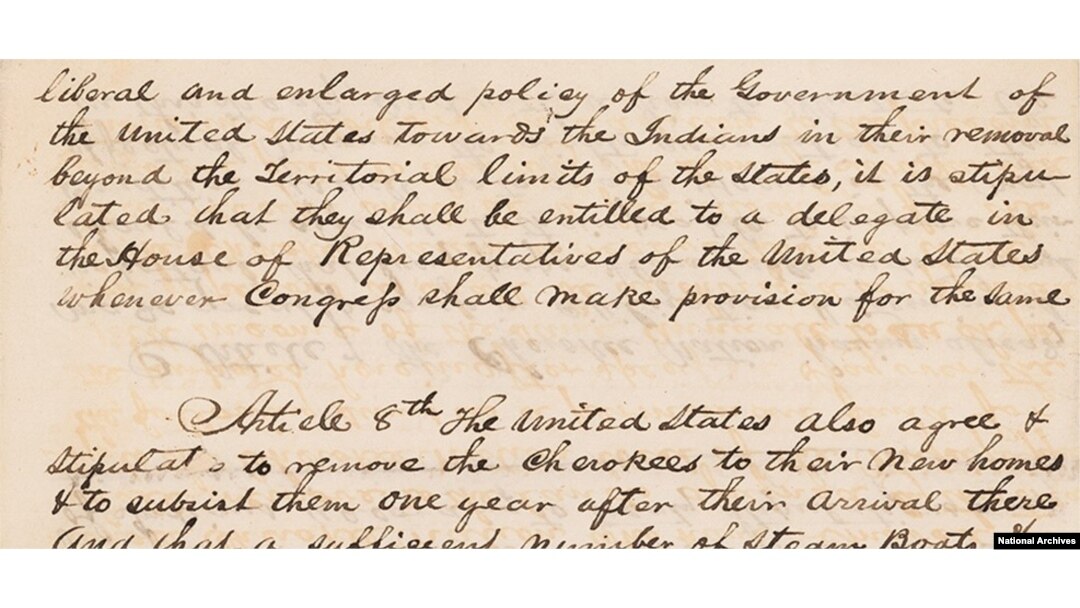 liberal and enlarged policy of the Government of
the United States towards the Indians in their removal
beyond the Territorial limits of the States, it is stipu-
lated that they shall be entitled to a delegate in
the House of Representatives of the United States
whenever Congress shall make provision for the same
Article 8th The United States also agree &
stipulat to remove the Cherokees to their New homes
& to subsist them one year after their arrival there
And that a sufficient number of Steam Boats &
National Archives